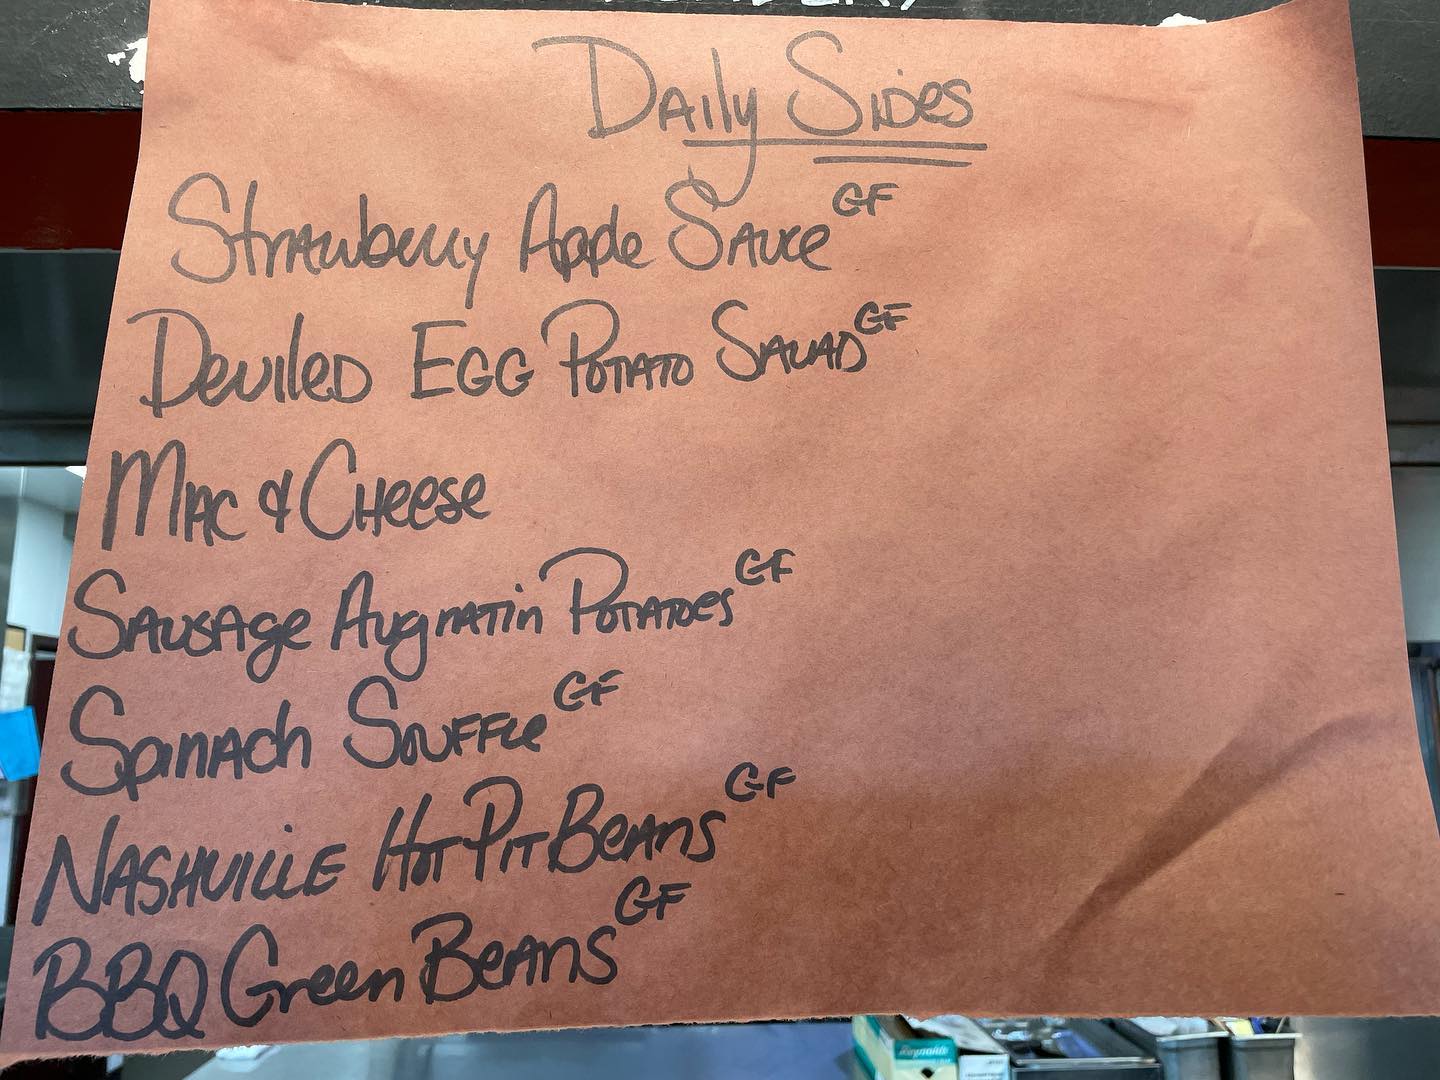 Daily Sides
Strawberry Apple Sauce GF
Deviled Egg Potato Salad GF
Mac & Cheese
Sausage Augratin Potatoes GF
Spinach Souffle GF
Nashville Hot Pit Beans GF
BBQ Green Beans GF
Reynolds